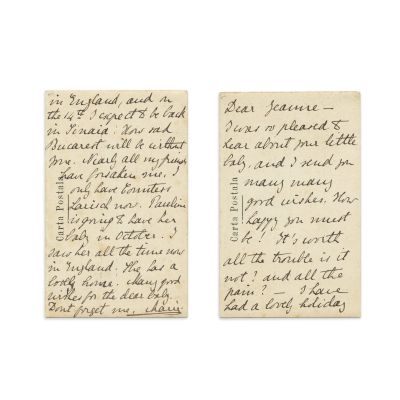 Dear Jeanne —
I was so pleased to
hear about your little
baby, and I send you
many many
good wishes. How
happy you must
be! It's worth
all the trouble is it
not? and all the
pain? — I have
had a lovely holiday
Carta Postala
in England, and on
the 14th I expect to be back
in Sinaia. How sad
Bucarest will be without
you. Nearly all my friends
have forsaken me. I
only have Countess
Larisch now. Pauline
is going to have her
baby in October. I
saw her all the time now
in England. She has a
lovely home. Many good
wishes for the dear baby.
Dont forget me, Marie
Carta Postala